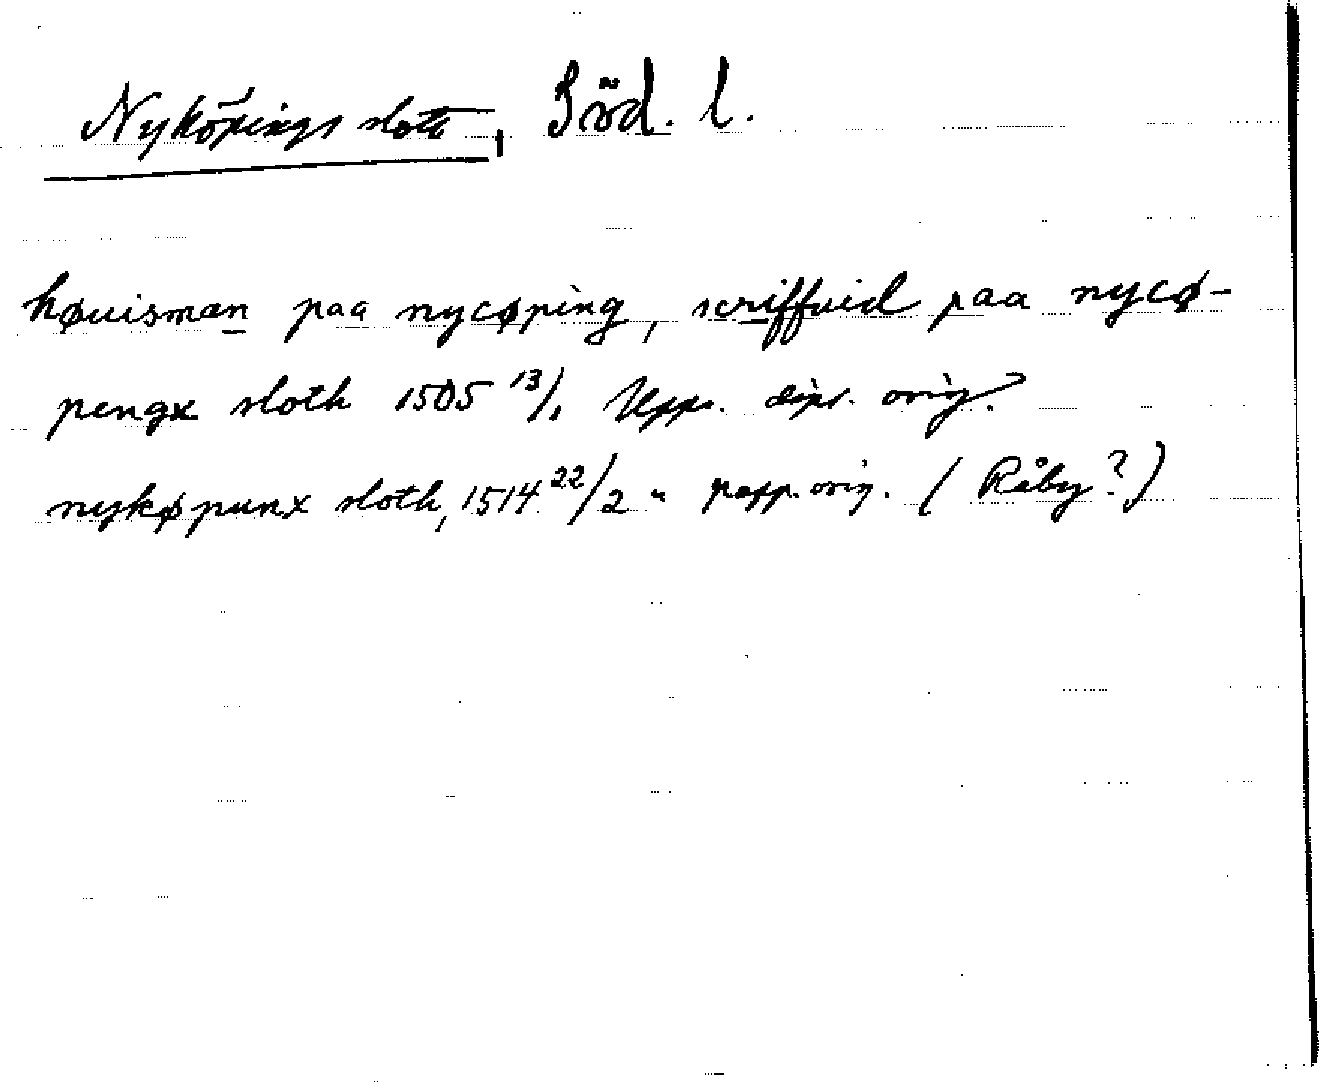 Nyköpings slott, Söd. l.
høuisman paa nycøping, scriffuid paa nycø-
pengx sloth 1505 13/1 Upps. dipl. orig.
nykøpunx sloth, 1514 22/2 " papp. orig. (Råby?)